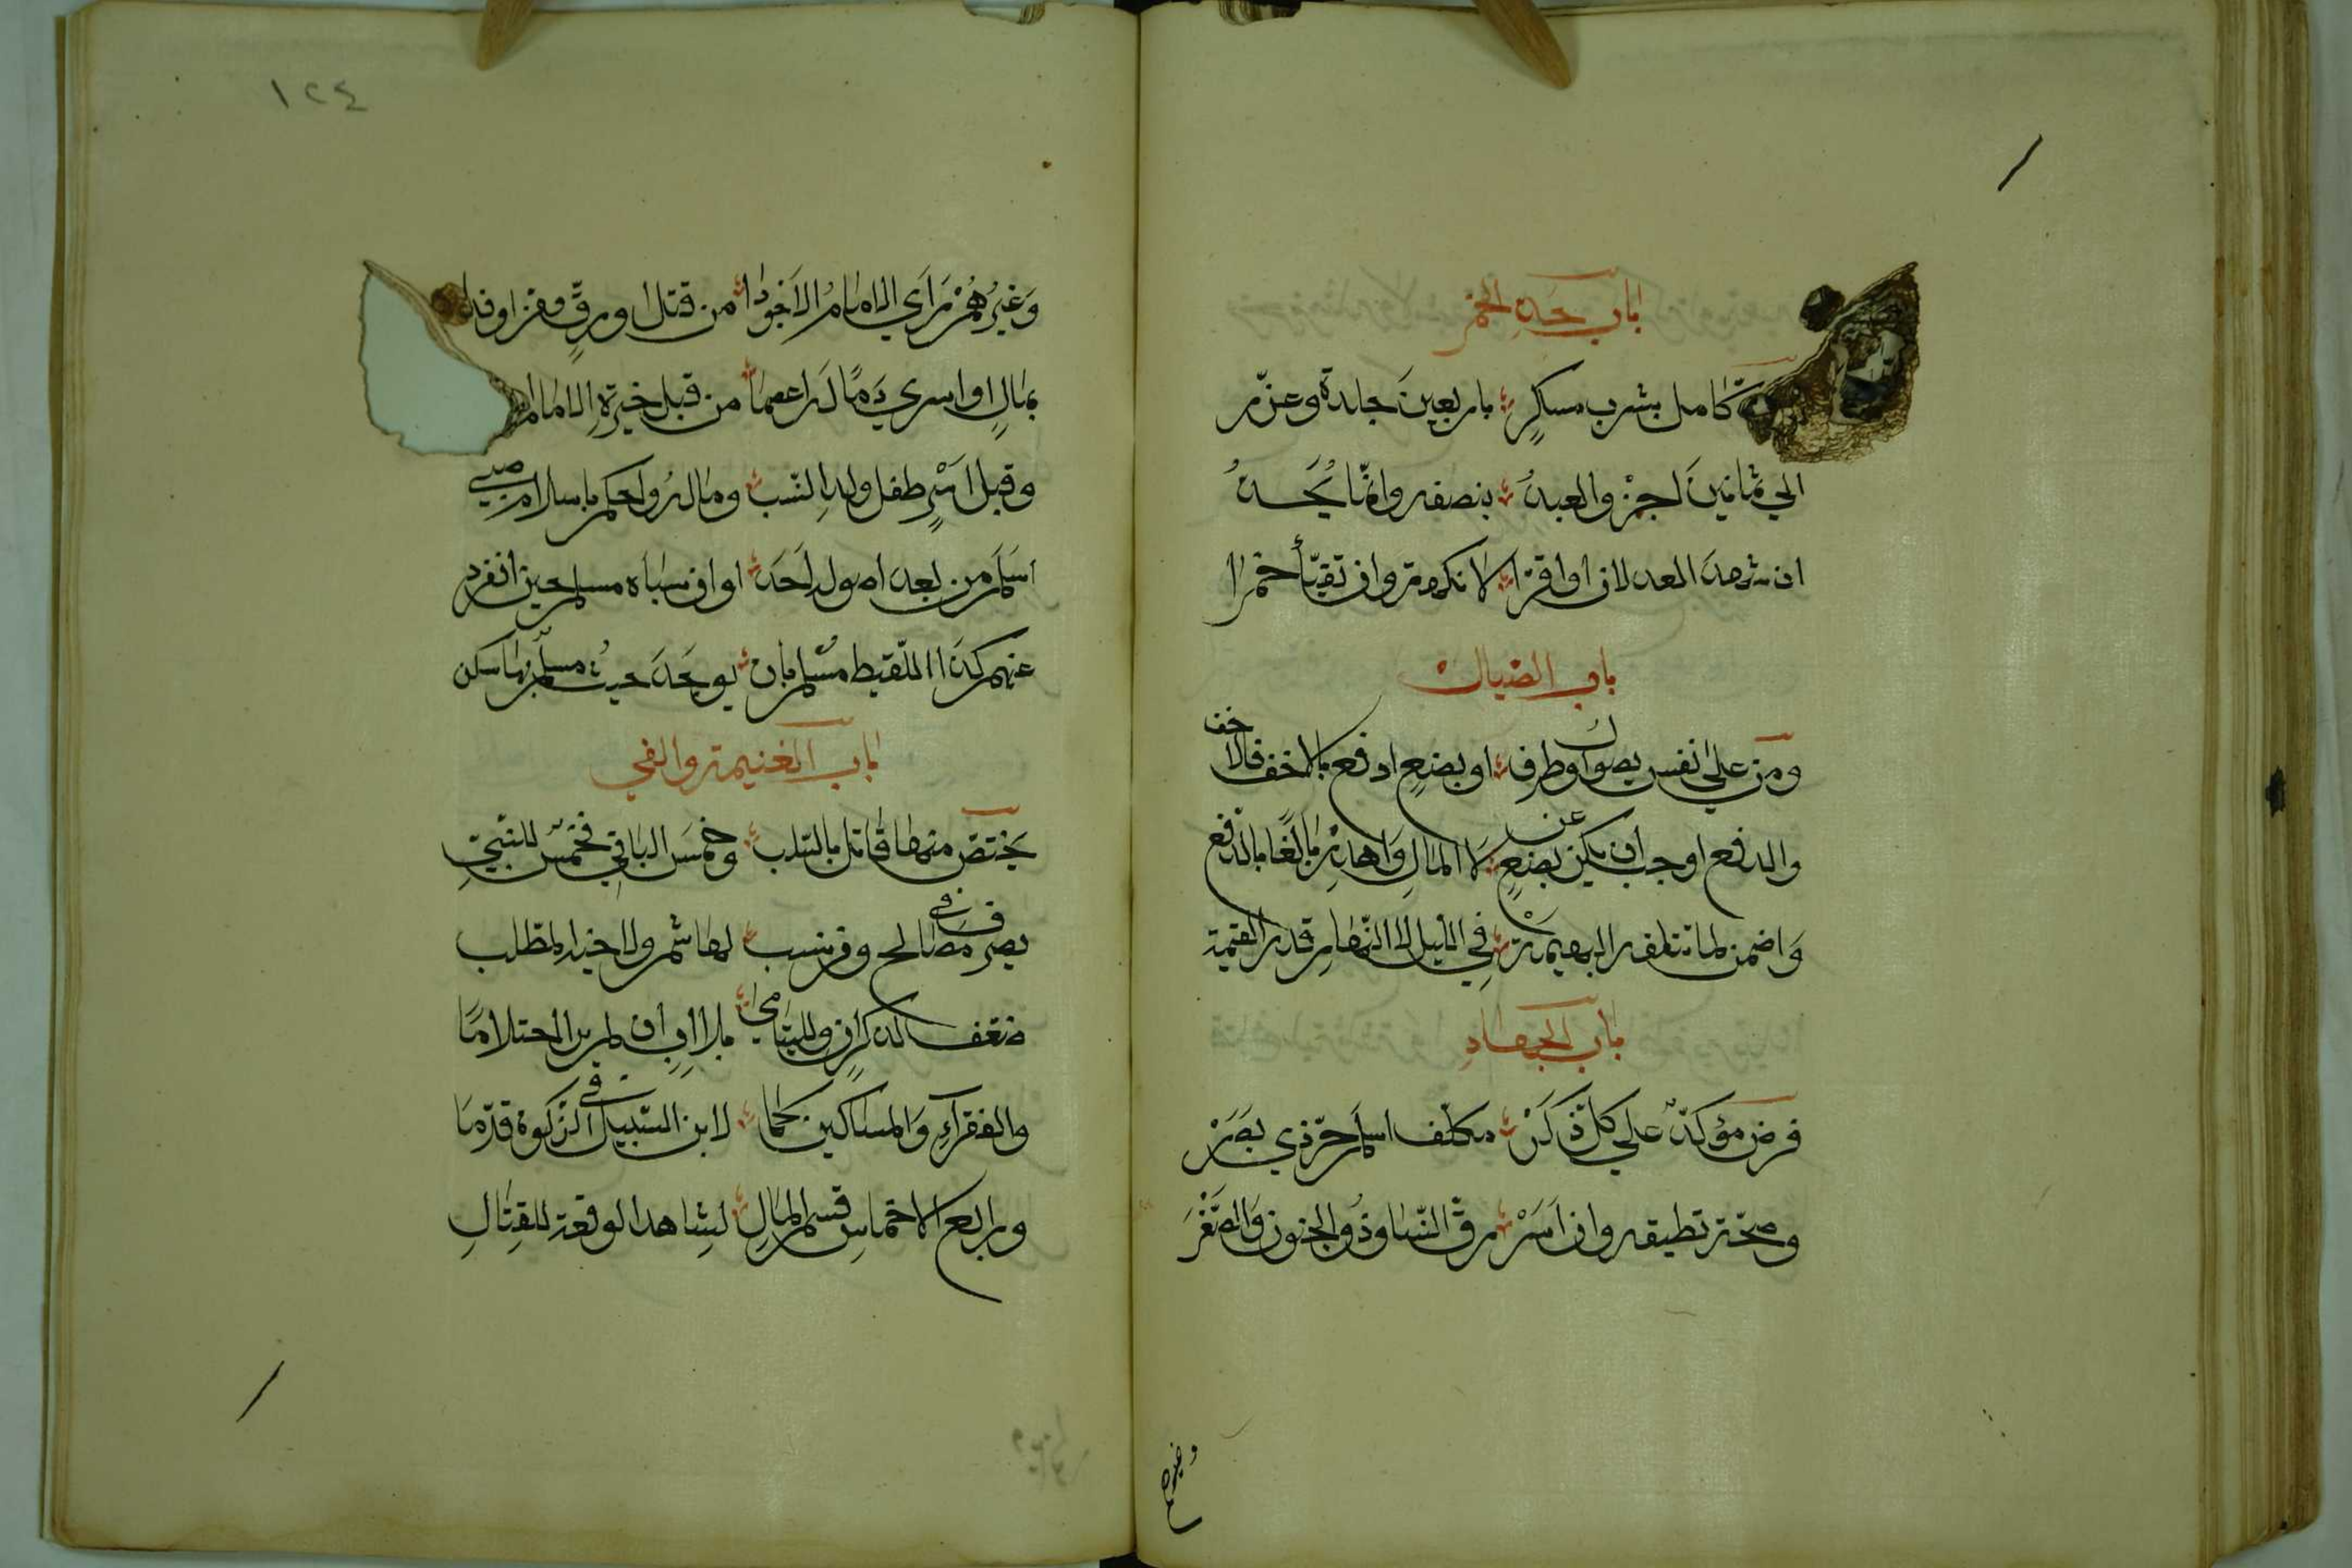 باب حد الخمر
كامل بشرب مسكر باربعين جلدة وعزر
الي ثمانين اجز والعبد بنصفه وانما يحد
ان شهد العدلان او اقرا لا نكهة وان تقيأ خمرا
باب الصيال
ومن علي نفس يصول او طرف او بضع ادفع بالاخف فالاخف
والدفع اوجب ان يكن عن بضع لا المال واهدر تالفا بالدفع
واضمن لما تتلفه البهيمة في الليل لا النهار قدر القيمة
باب الجهاد
فرض مؤكد علي كل ذكر مكلف اسلم حر ذي بصر
وصحة تطيقه وان اسر رق النسا وذو الجنون والصغر
وغيرهم
١٢٤
وغيرهم راي الامام الاجودا من قتل او رق ومن او فدا
بمال او اسري دما له اعصما من قبل خيرة الامام
وقبل اسر طفل ولد النسب وماله واحكم باسلام صبي
اسلم من بعد اصوله احد او ان سباه مسلم حين انفرد
عنهم كذا اللقيط مسلم بان يوجد حيث مسلم بها سكن
باب الغنيمة والفي
يختص منها قاتل بالسلب وخمس الباقي فخمس للنبي
يصرف في مصالح ومن نسب لهاشم ولاخيه المطلب
لذكر اضعف وللیتامي بلا اب ان لم ير احتلاما
والفقراء والمساكين كما لابن السبيل في الزكوة قدما
واربع الاخماس قسم المال لشاهد الوقعة للقتال